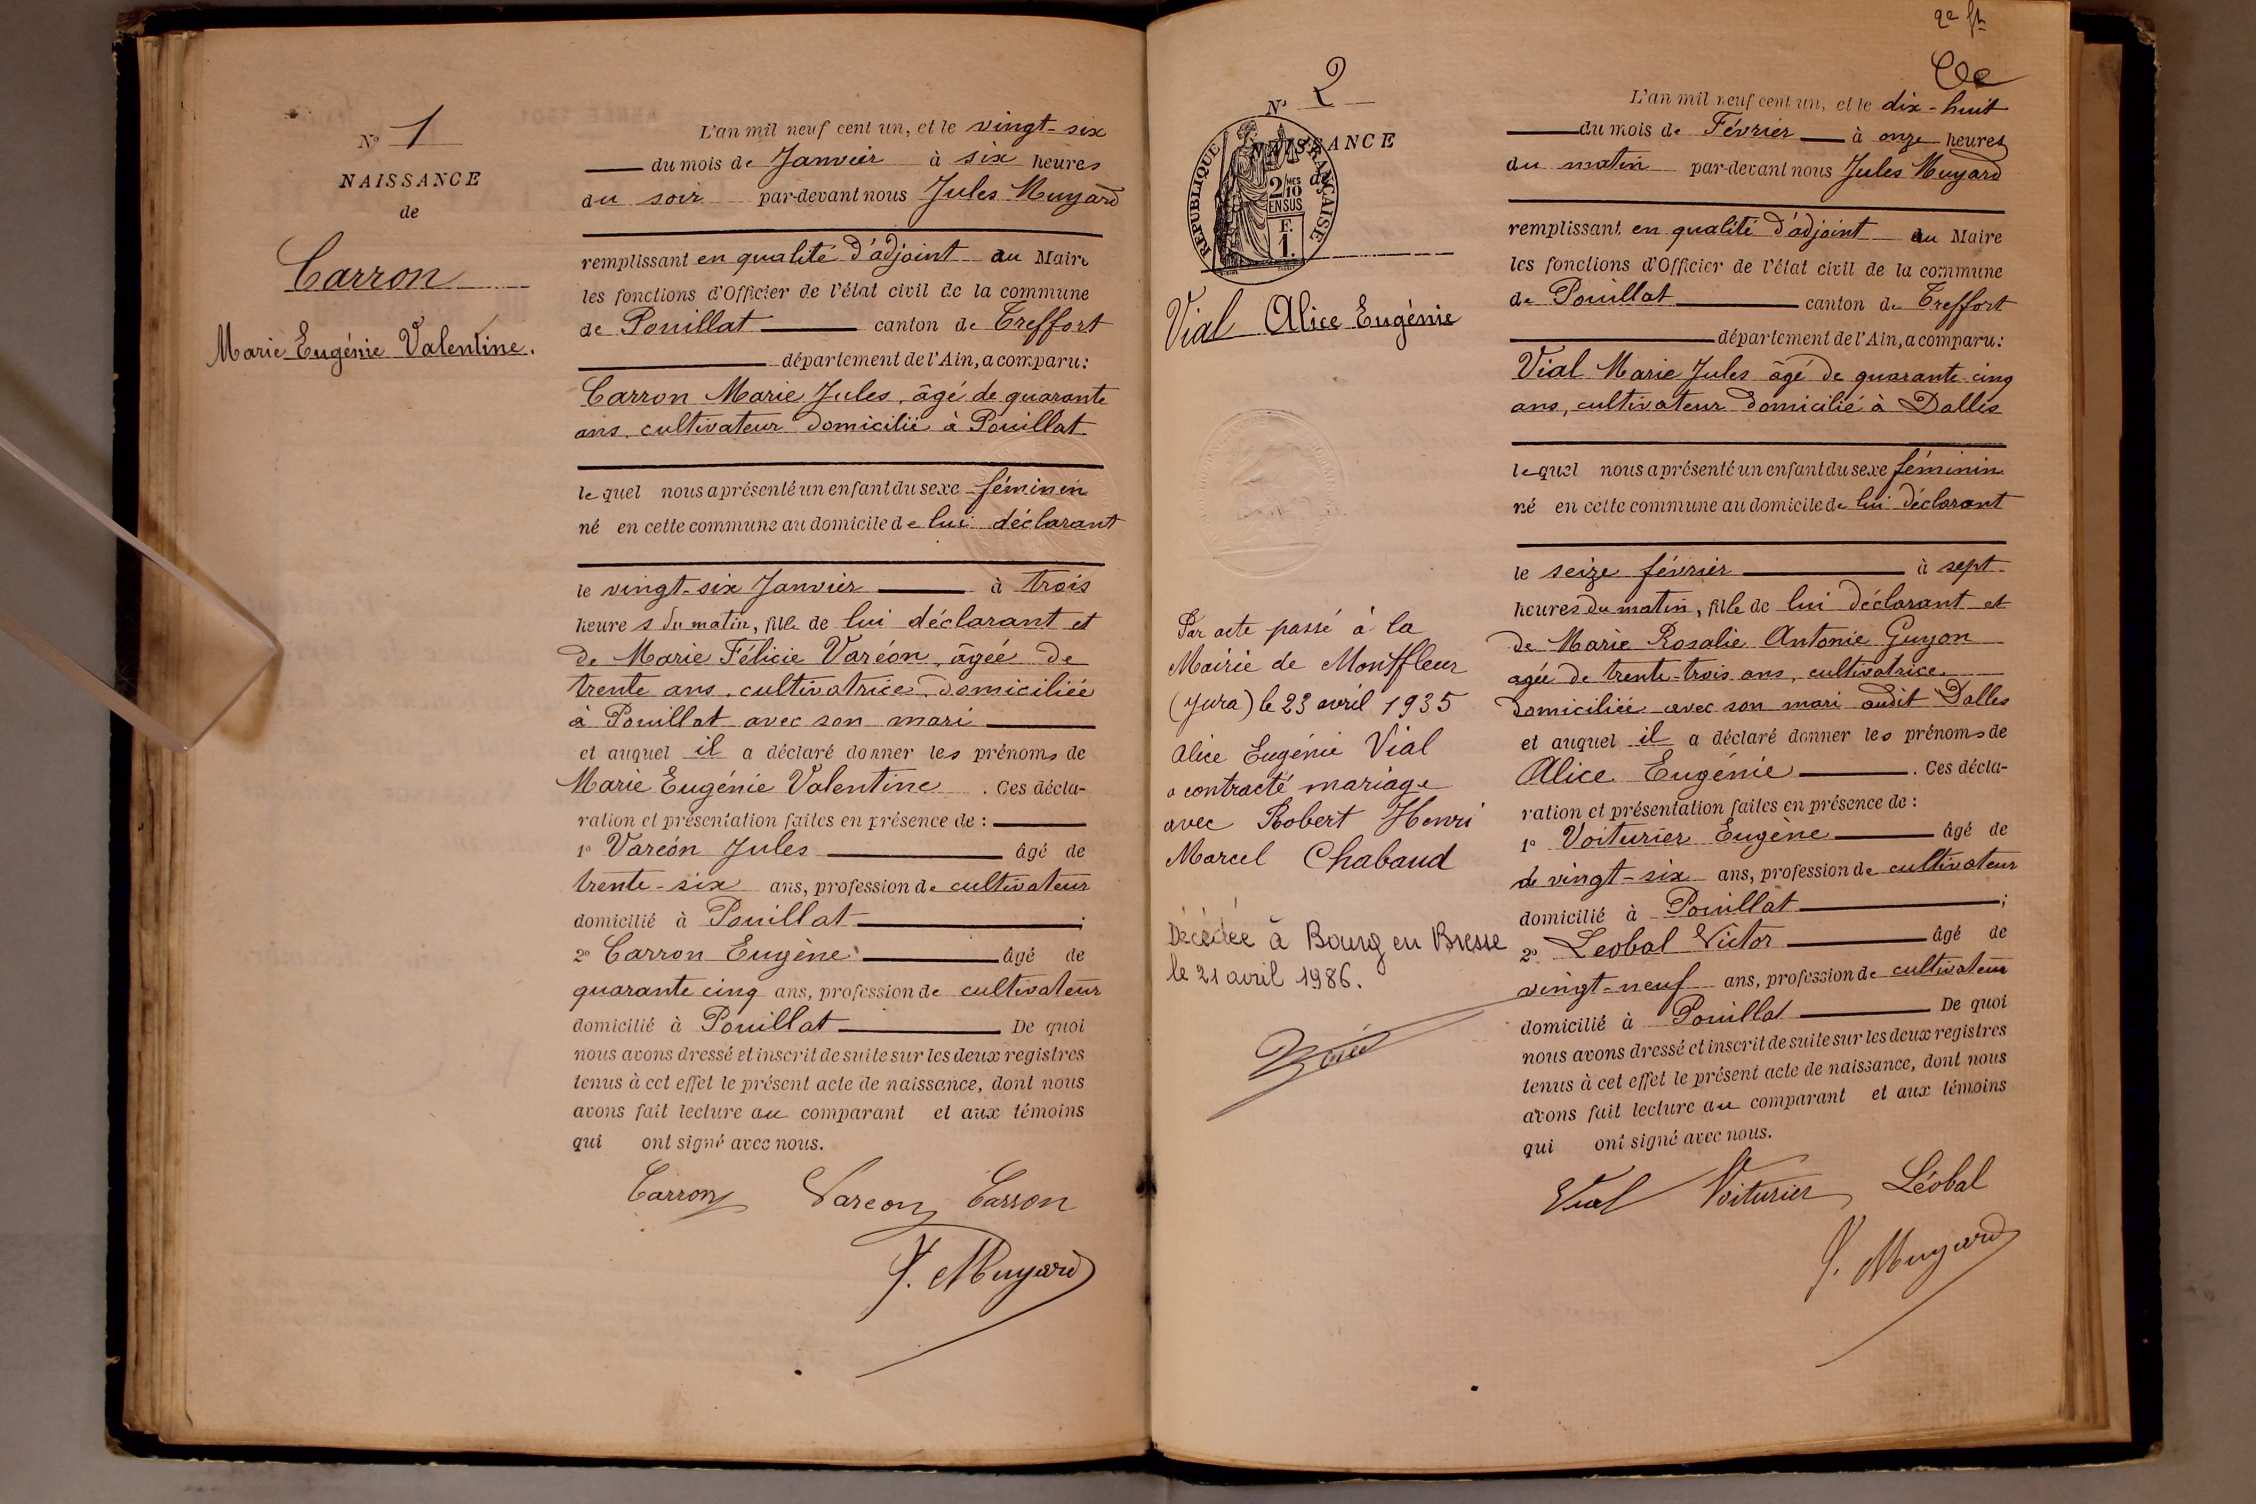 N° 1
NAISSANCE
de
Carron
Marie Eugénie Valentine.
L'an mil neuf cent un, et le vingt-six
du mois de Janvier à six heures
du soir par-devant nous Jules Muyard
remplissant en qualité d'adjoint au Maire
les fonctions d'Officier de l'état civil de la commune
de Pouillat canton de Treffort
département de l'Ain, a comparu:
Carron Marie Jules, âgé de quarante
ans, cultivateur domicilié à Pouillat
lequel nous a présenté un enfant du sexe féminin
né en cette commune au domicile de lui déclarant
le vingt-six Janvier à trois
heures du matin, fille de lui déclarant et
de Marie Félicie Varéon, âgée de
trente ans, cultivatrice, domiciliée
à Pouillat avec son mari
et auquel il a déclaré donner les prénoms de
Marie Eugénie Valentine. Ces décla-
ration et présentation faites en présence de :
1° Varéon Jules âgé de
trente-six ans, profession de cultivateur
domicilié à Pouillat ;
2° Carron Eugène âgé de
quarante cinq ans, profession de cultivateur
domicilié à Pouillat De quoi
nous avons dressé et inscrit de suite sur les deux registres
tenus à cet effet le présent acte de naissance, dont nous
avons fait lecture au comparant et aux témoins
qui ont signé avec nous.
Carron Vareon Carron
J. Muyard
N° 2
NAISSANCE
de
RÉPUBLIQUE FRANÇAISE
2/10 MES
EN SUS
F.
1.
Vial Alice Eugénie
Par acte passé à la
Mairie de Montfleur
(Jura) le 23 avril 1935
Alice Eugénie Vial
a contracté mariage
avec Robert Henri
Marcel Chabaud
Décédée à Bourg en Bresse
le 21 avril 1986.
L'an mil neuf cent un, et le dix-huit
du mois de Février à onze heures
du matin par-devant nous Jules Muyard
remplissant en qualité d'adjoint au Maire
les fonctions d'Officier de l'état civil de la commune
de Pouillat canton de Treffort
département de l'Ain, a comparu:
Vial Marie Jules âgé de quarante-cinq
ans, cultivateur domicilié à Dalles
lequel nous a présenté un enfant du sexe féminin
né en cette commune au domicile de lui déclarant
le seize février à sept
heures du matin, fille de lui déclarant et
de Marie Rosalie Antonie Guyon
agée de trente-trois ans, cultivatrice,
domiciliée avec son mari audit Dalles
et auquel il a déclaré donner les prénoms de
Alice Eugénie . Ces décla-
ration et présentation faites en présence de :
1° Voiturier Eugène âgé de
de vingt-six ans, profession de cultivateur
domicilié à Pouillat ;
2° Leobal Victor âgé de
vingt-neuf ans, profession de cultivateur
domicilié à Pouillat De quoi
nous avons dressé et inscrit de suite sur les deux registres
tenus à cet effet le présent acte de naissance, dont nous
avons fait lecture au comparant et aux témoins
qui ont signé avec nous.
Vial Voiturier Léobal
J. Muyard